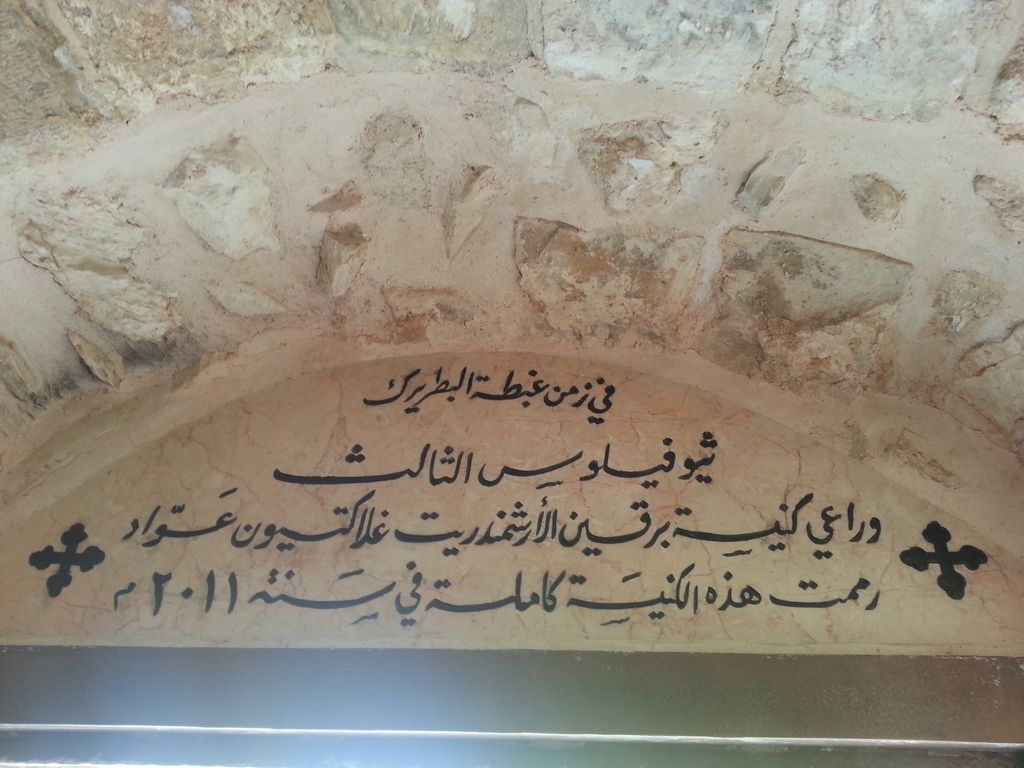 في زمن غبطة البطريرك
ثيوفيلوس الثالث
وراعي كنيسة برقين الأرشمندريت غلاكتيون عَوّاد
رممت هذه الكنيسَة كاملة في سَنة ٢٠١١ م